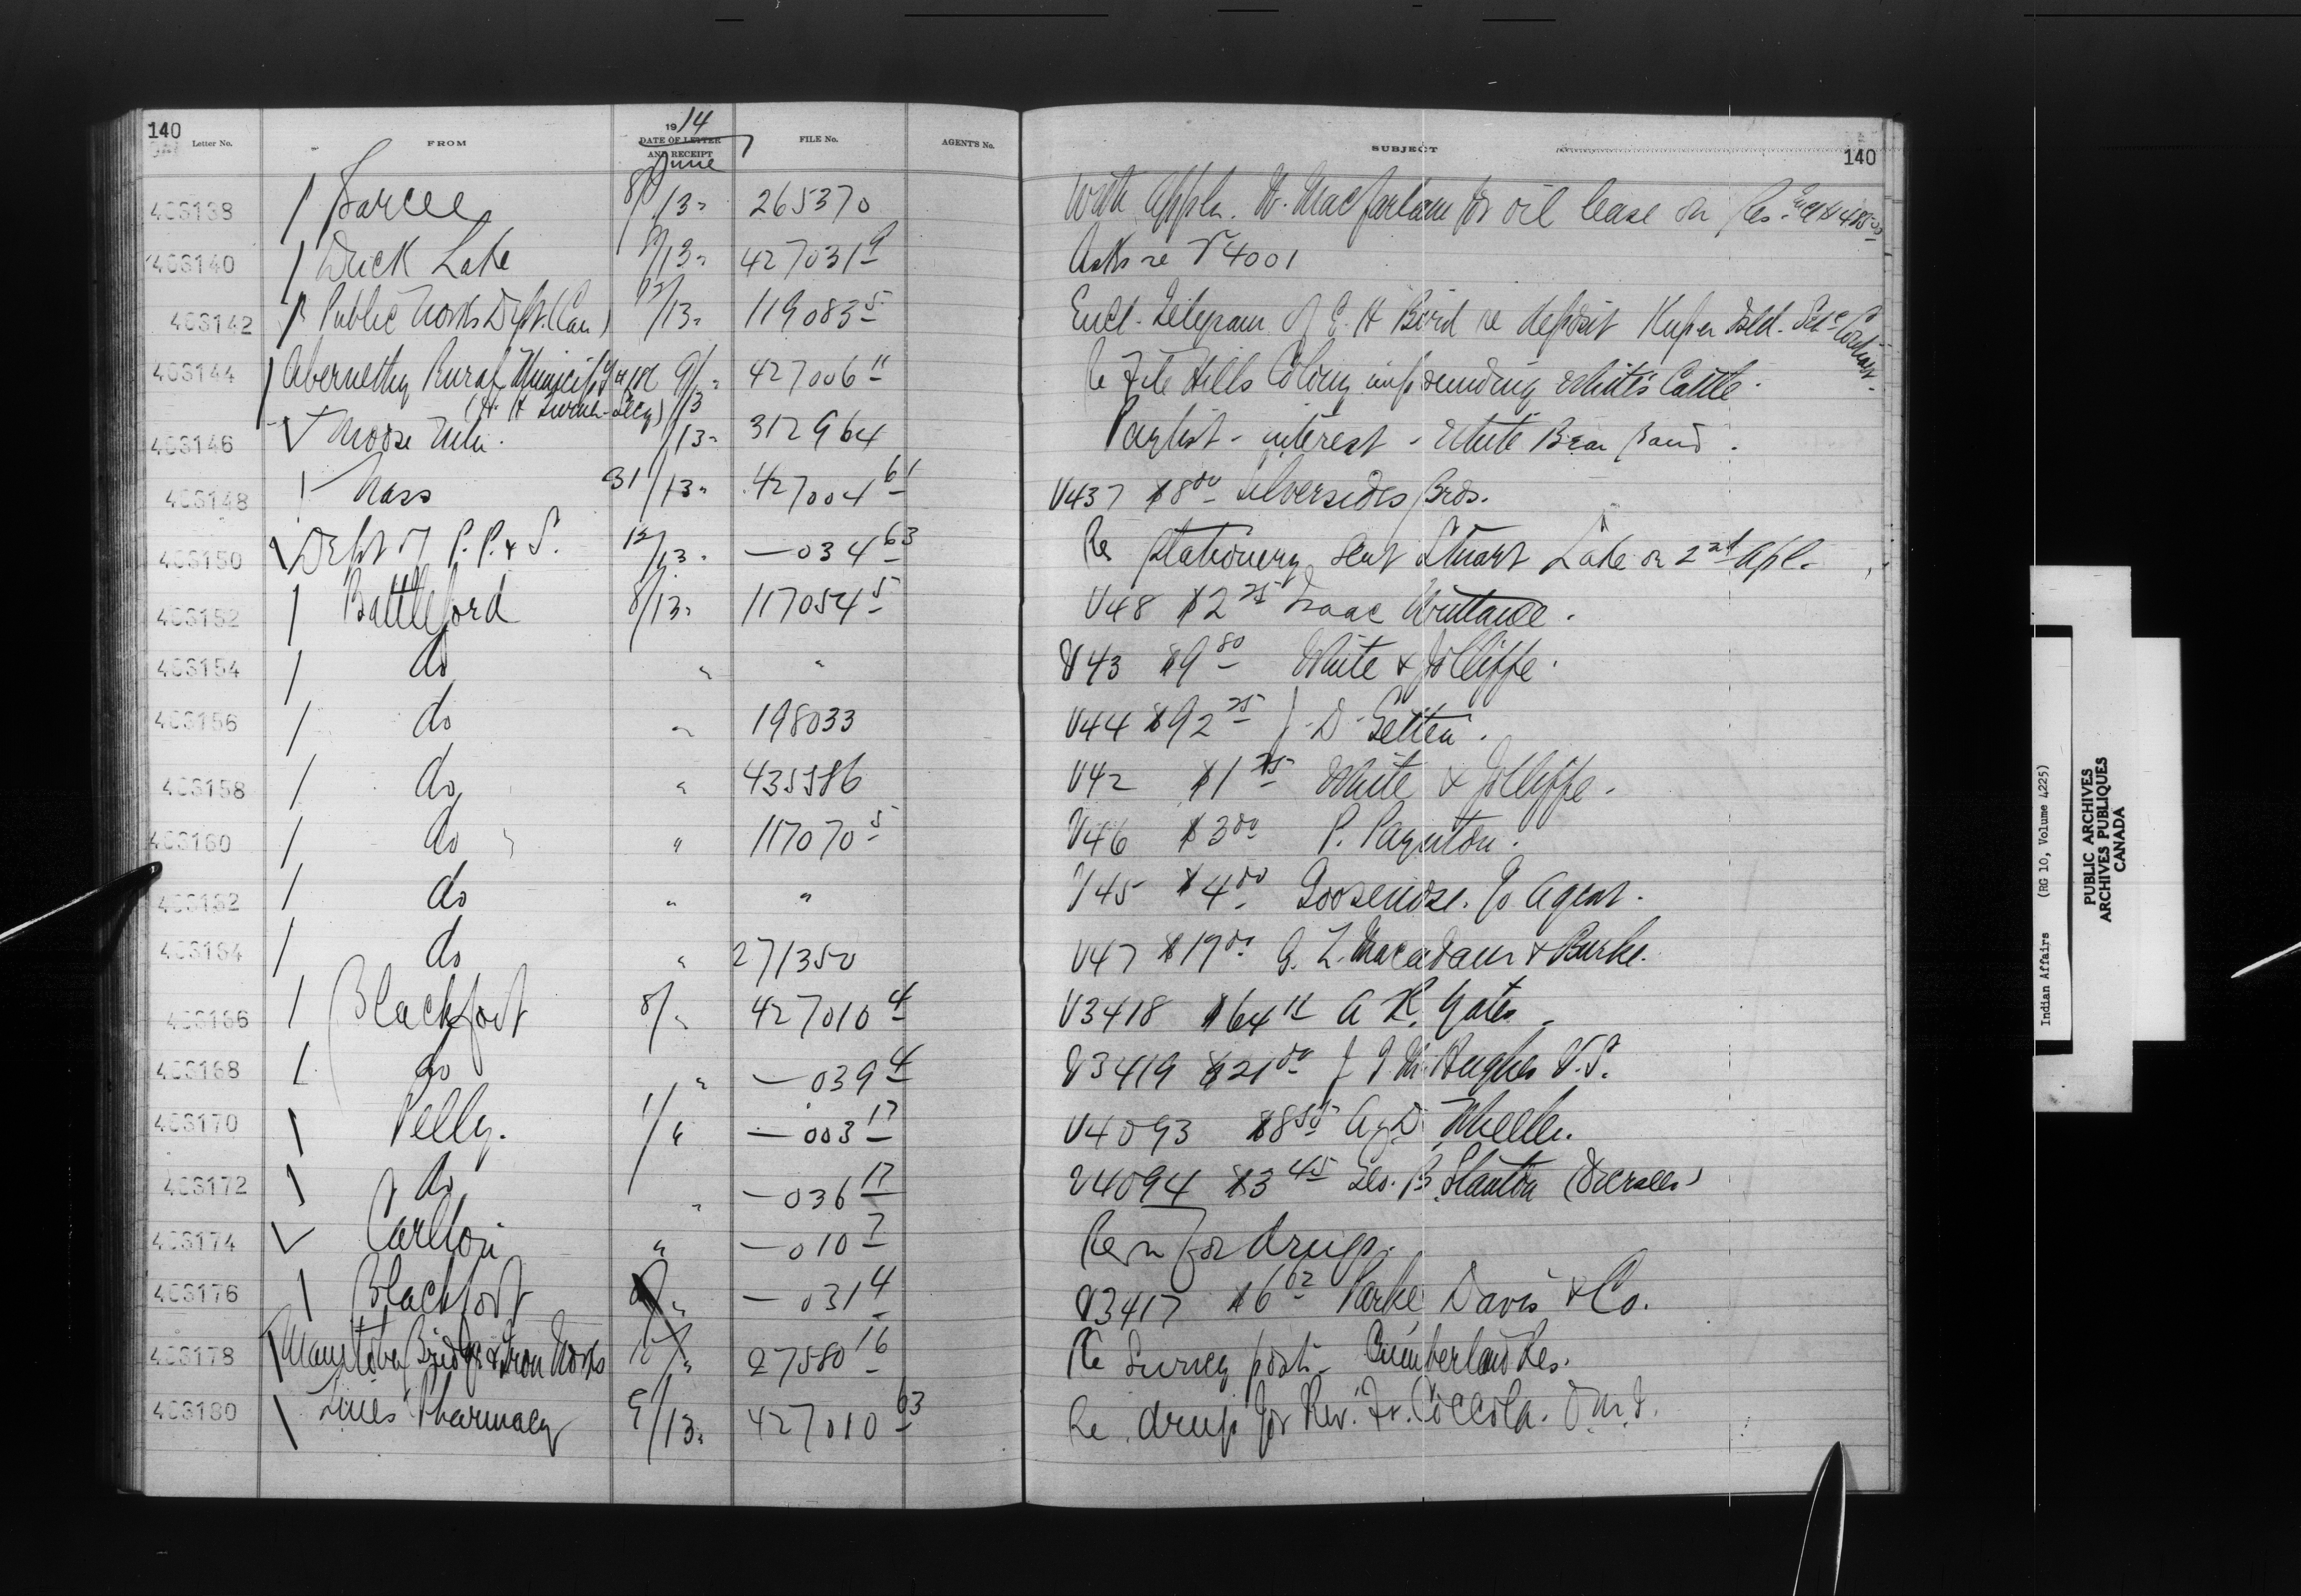 140
Letter No. FROM 1914 DATE OF LETTER AND RECEIPT June FILE No. AGENT'S No. SUBJECT 140
403138 Sarcee 8/13 " 265370 With appln. W. MacFarlane for oil lease on Res.
403140 Duck Lake 8/13 " 427031 9 Asks re V4001
403142 Public Works Dept. (Can) 12/13 " 119083 5 Encl. Telegram of E. H Bird re deposit Kuper Isld.
403144 Abernethy Rural Municip'y 9/13 " 427006 11 Re File Hills Colony impounding White's Cattle.
403146 Moose Mtn. /13 " 312964 Paylist - interest - White Bear Band.
403148 Nass 31/13 " 427004 61 V437 $8 00 Silversides Bros.
403150 Dept of P. P. & S. 12/13 " — 034 63 Re Stationery sent Stuart Lake on 2nd Apl.
403152 Battleford 8/13 " 117054 5 V48 $2 25 Isaac
403154 do " " V43 $9 80 White & Jolliffe.
403156 do " 198033 V44 $92 25 J. D.
403158 do " 435586 V42 $1 25 White & Jolliffe.
403160 do " 117070 5 V46 $3 00 P. Paynton.
403162 do " " V45 $4 00 Goosenose. Agent.
403164 do " 271350 V47 $19 00 Macadam & Burke.
403166 Blackfoot 8/ " 427010 4 V3418 $64 A K. Yates
403168 do " — 039 4 V3419 $21 00 J J McHughes V.S.
403170 Pelly. 1/ " — 003 17 V4093 $8 50 A J D
403172 do " — 036 17 V4094 $3 45 Geo. B. Stanton (Overalls)
403174 Carlton " — 010 7 Reqn for drugs.
403176 Blackfoot " — 031 4 V3417 $6 62 Parke, Davis & Co.
403178 Manitoba Bridge & Iron Works 10/ " 27580 16 Re Survey posts - Cumberland Res.
403180 Pharmacy 9/13 " 427010 63 Re drugs for Rev. Fr. Coccola. O.M.I.
Indian Affairs (RG 10, Volume 4225)
PUBLIC ARCHIVES
ARCHIVES PUBLIQUES
CANADA